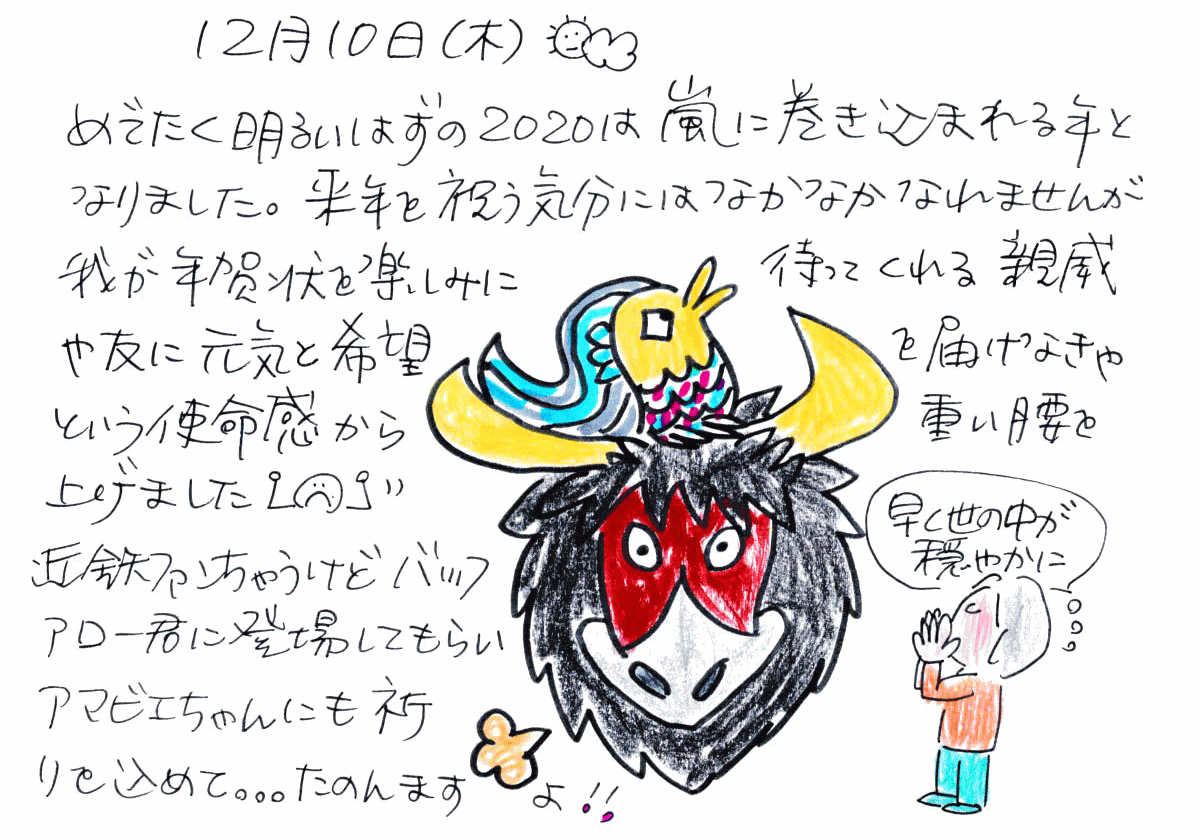 12月10日(木)
めでたく明るいはずの2020は嵐に巻き込まれる年と
なりました。来年を祝う気分にはなかなかなれませんが
我が年賀状を楽しみに 待ってくれる親戚
や友に元気と希望 を届けなきゃ
という使命感から 重い腰を
上げました
早く世の中が
穏やかに
近鉄ファンちゃうけどバッフ
アロー君に登場してもらい
アマビエちゃんにも祈
りを込めて。。。たのんます
よ!!